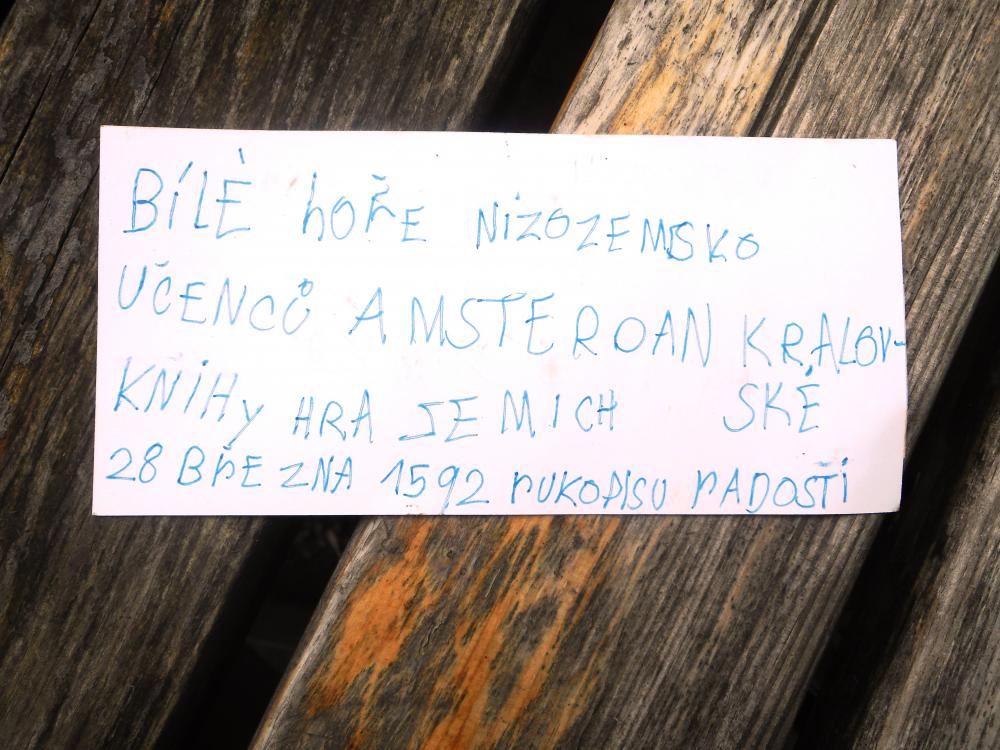 BÍLÈ hOŘE NiZOZEMSKO
UČENCŮ AMSTEROAN KRALOV-
KNiHy HRA JEMICH SKÉ
28 BŘEZNA 1592 rUKOPISU rADOSŤI